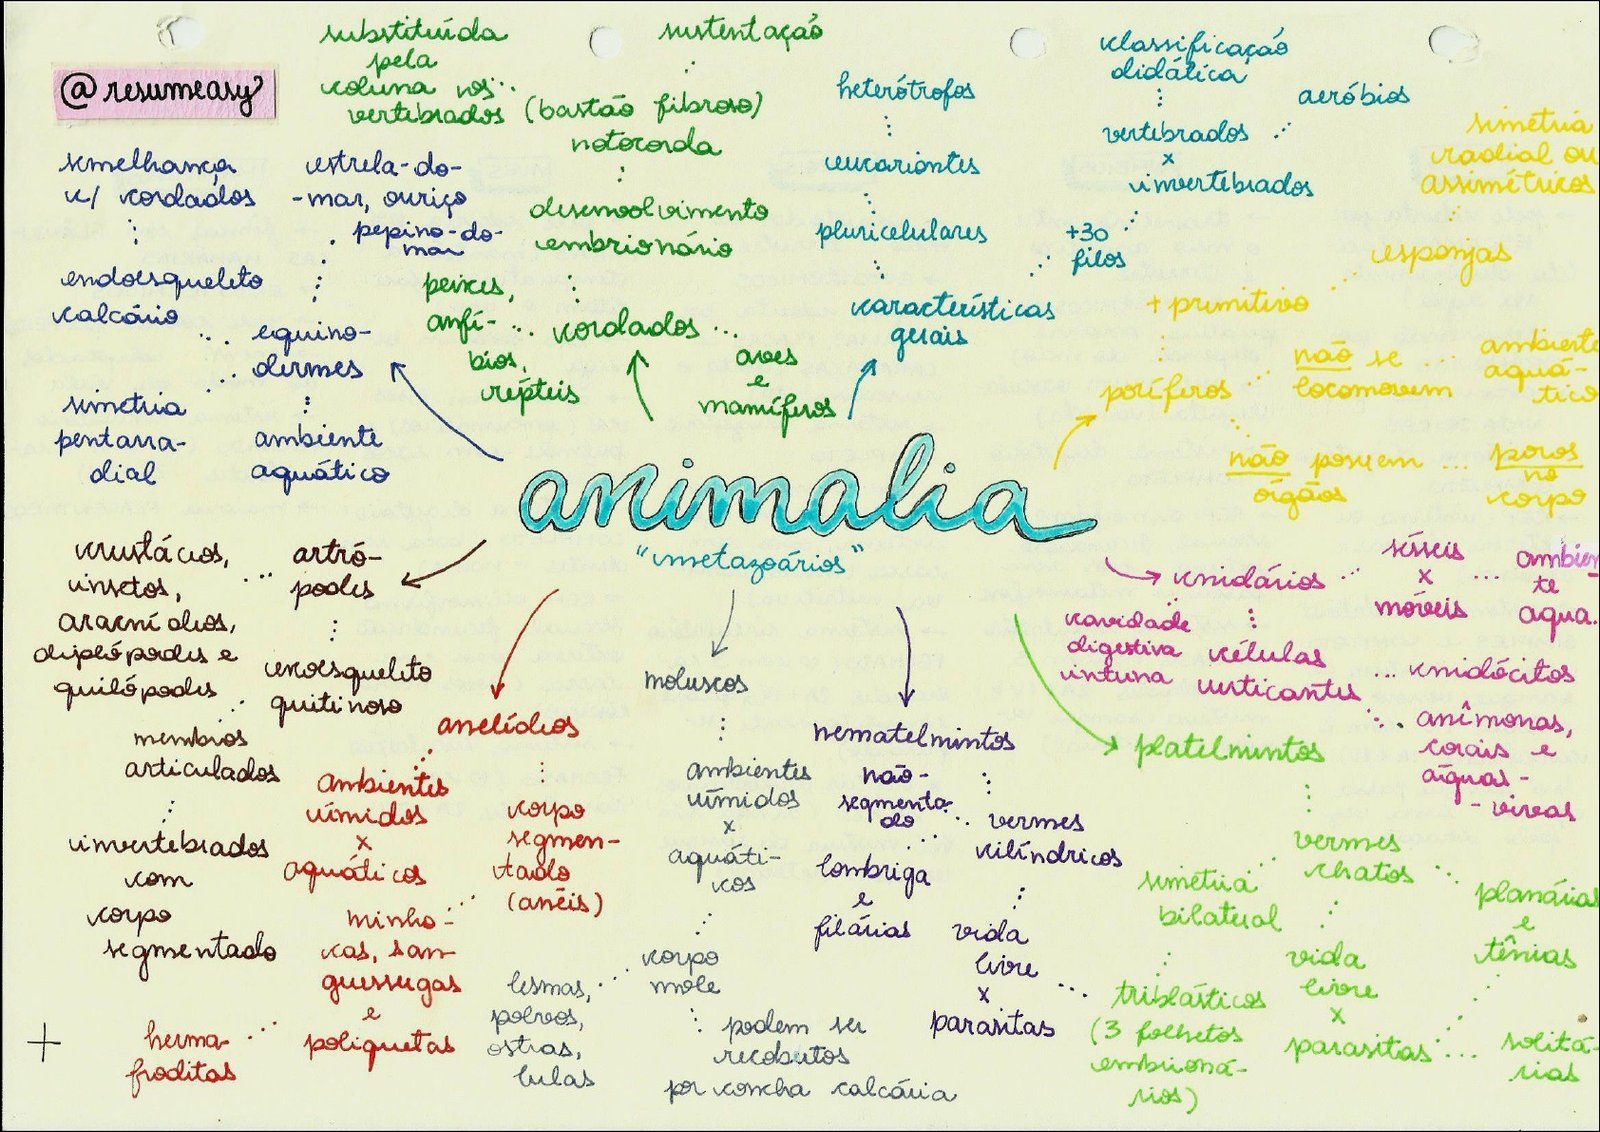 @resumeasy
substituída
pela
coluna nos
vertebrados
sustentação
(bastão fibroso)
notocorda
desenvolvimento
embrionário
peixes,
anfí-
bios,
répteis
cordados
aves
e
mamíferos
semelhança
c/ cordados
endoesqueleto
calcário
simetria
pentarra-
dial
estrela-do-
-mar, ouriço
pepino-do-
mar
equino-
dermes
ambiente
aquático
heterótrofos
eucariontes
pluricelulares
características
gerais
classificação
didática
vertebrados
x
invertebrados
+30
filos
aeróbios
simetria
radial ou
assimétricos
esponjas
+ primitivo
poríferos
não se
locomovem
ambiente
aquá-
tico
não possuem
órgãos
poros
no
corpo
animalia
"metazoários"
crustáceos,
insetos,
aracnídeos,
diplópodes e
quilópodes
artró-
podes
exoesqueleto
quitinoso
membros
articulados
invertebrados
com
corpo
segmentado
anelídeos
ambientes
úmidos
x
aquáticos
corpo
segmen-
tado
(anéis)
minho-
cas, san-
guessugas
e
poliquetas
herma-
froditas
moluscos
ambientes
úmidos
x
aquáti-
cos
corpo
mole
lesmas,
polvos,
ostras,
lulas
podem ser
recobertos
por concha calcária
nematelmintos
não-
segmenta-
do
vermes
cilíndricos
lombriga
e
filárias
vida
livre
x
parasitas
cnidários
sésseis
x
móveis
ambien-
te
aqua.
cavidade
digestiva
interna
células
urticantes
cnidócitos
anêmonas,
corais e
águas-
-vivas
platelmintos
vermes
chatos
simetria
bilateral
planárias
e
tênias
triblásticos
(3 folhetos
embrioná-
rios)
vida
livre
x
parasitas
solitá-
rias